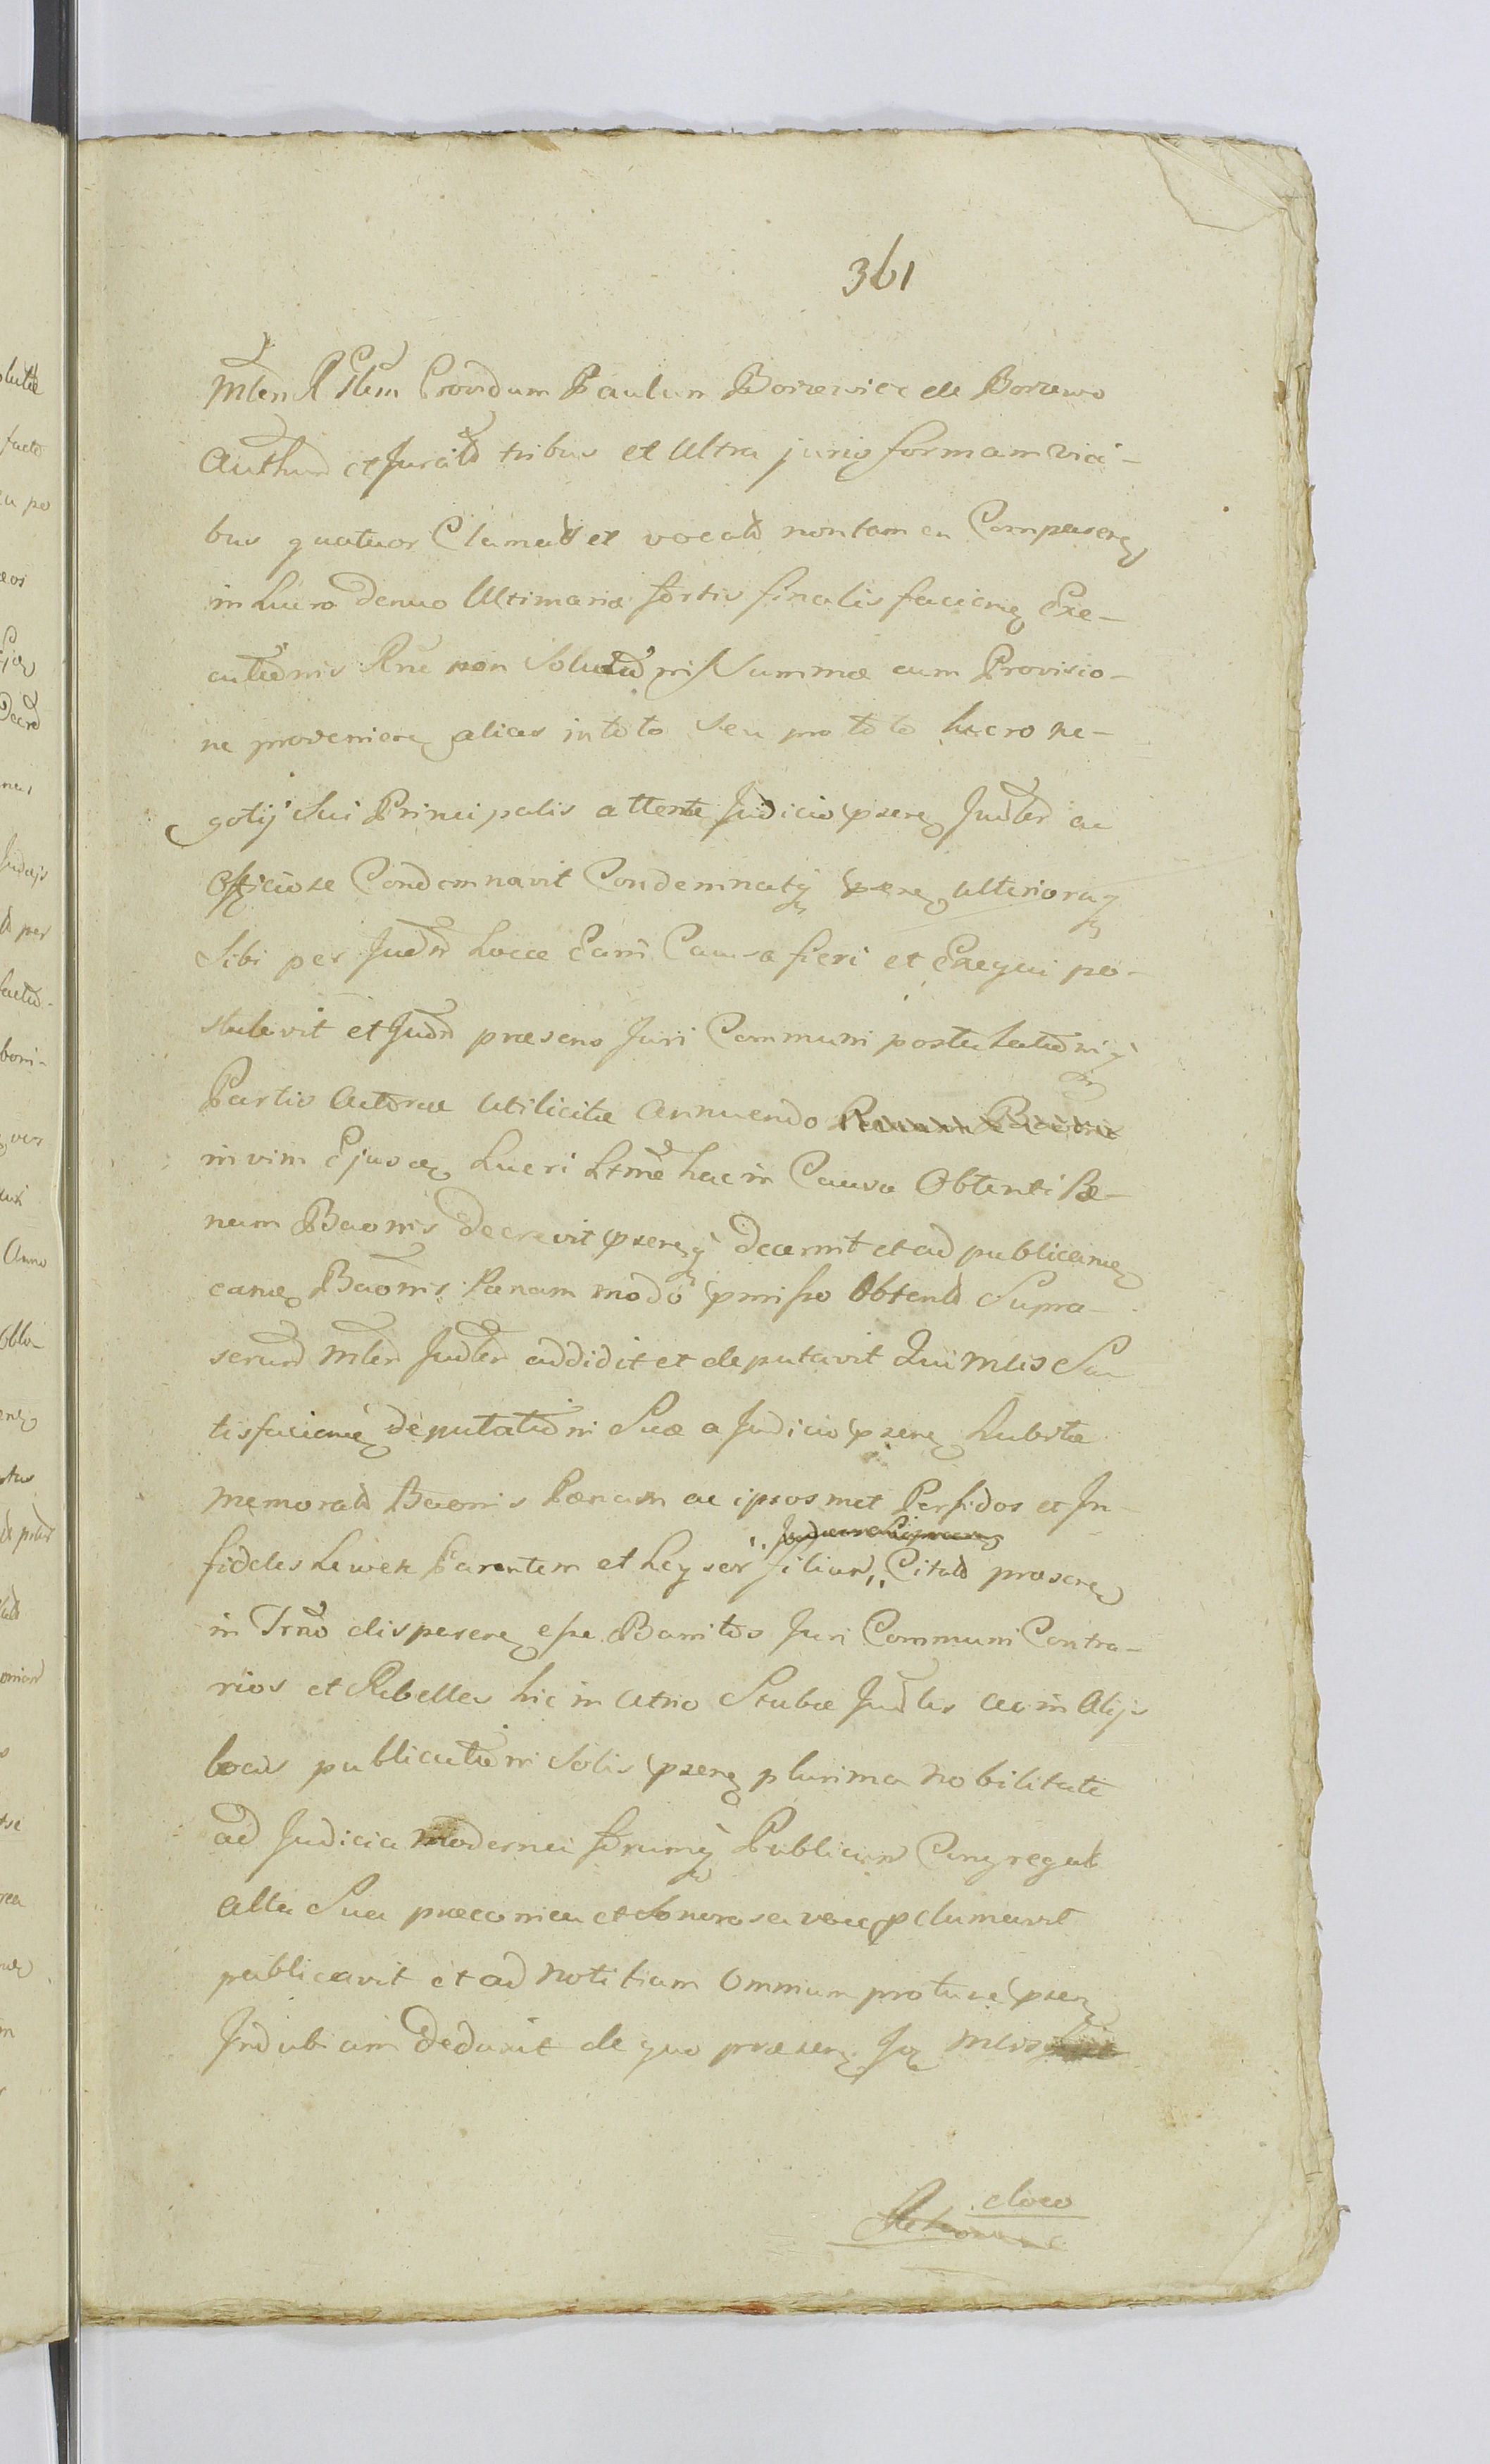 361
Mlem R Hem Providum Paulum Borzewicz de Borzewo
Authum et Jurātū tribus et Ultra juris formam vici-
bus quatuor Clamat et vocatū non tamen Comparenꝫ
in Lucro denuo Ultimaria sortis finalis facienꝫ Exe-
cutionis Rne non Solutū Summæ cum Provisio-
ne provenienꝫ alias in toto seu pro toto lucro ne-
gotij Sui Principalis attente Judicio pserꝫ Judlr ac
Officiose Condemnavit Condemnatqꝫ pserꝫ ulterioraqꝫ
Sibi per Judm Locca Eam Causa fieri et Exequi po-
stulavit et Judm præsens Juri Communi postulationiqꝫ
Partis Actoreæ utilicitæ annuendo
in vim Ejusdꝫ Lucri Ltme hac in Causa Obtenti Pæ-
nam Baonis decrevit pserꝫqꝫ decernit et ad publicanꝫ
eanꝫ Baonis Pænam modo pmisso Obtentū Supra-
scrum Mler Judler addidit et deputavit Qui Mlis Sa
tisfacienꝫ deputationi Suæ a Judicio pserꝫ Subitæ
memoratū Baonis Pænam ac ipsosmet Perfidos et In-
fideles Lewek Parentem et Leyser filium, Citatū pro serꝫ
in Trno disparenꝫ esse Banitos Juri Communi Contra-
rios et Rebelles hic in Atrio Stubæ Judlis ac in Alijs
locis publicationi Solis pserꝫ plurima nobilitate
ad Judicia moderna forumqꝫ Publicum Congregat
alta Sua præconica et Sonorosa voce pclamavit
publicavit et ad notitiam Omnium protunc pserꝫ
Indubiam deduxit de quo præserꝫ Jdꝫ Mlis
cloco